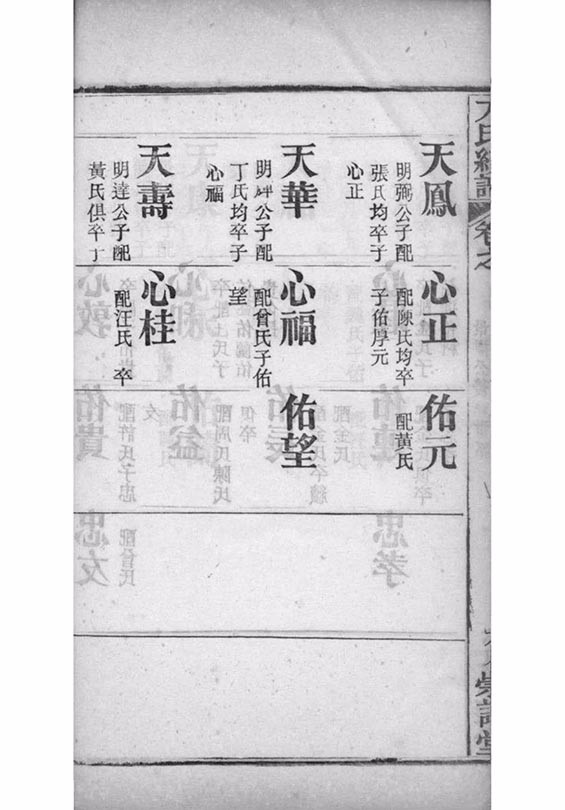 天鳳
明弼公子配
張氏均卒子
心正
心正
配陳氏均卒
子佑厚元
佑元
配黃氏
天華
公子配
丁氏均卒子
心福
心福
配曾氏子佑
望
佑望
天壽
明達公子配
黃氏俱卒
心桂
配汪氏卒